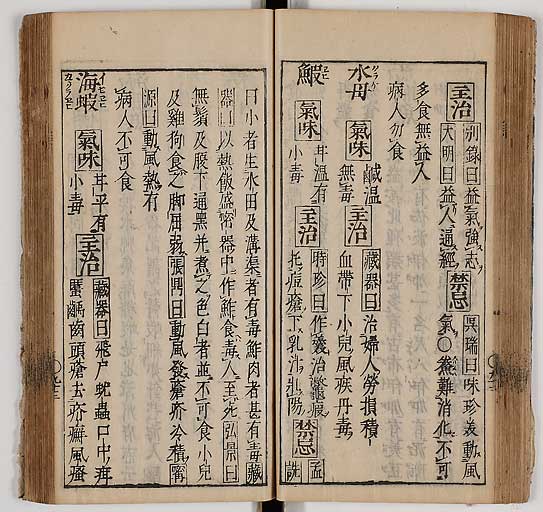 主治
別錄曰益氣強志
大明曰益人通經
禁忌
吳瑞曰味珍美動風
氣○煮難消化不可
多食無益人
病人勿食
水母
クラゲ
氣味
鹹温
無毒
主治
藏器曰治婦人勞損積
血帶下小兒風疾丹毒
鰕
エビ
氣味
甘温有
小毒
主治
時珍曰作羹治鱉瘕
托痘瘡下乳汁壯陽
禁忌
孟
詵
曰小者生水田及溝渠者有毒鮓肉者甚有毒藏
器曰以熱飯盛密器中作鮓食毒人至死弘景曰
無鬚及腹下通黑并煮之色白者並不可食小兒
及雞狗食之脚屈弱張鼎曰動風發瘡疥冷積甯
源曰動風熱有
病人不可食
海蝦
氣味
甘平有
小毒
主治
藏器曰飛尸蚘蟲口中疳
䘌齲齒頭瘡去疥癬風瘙